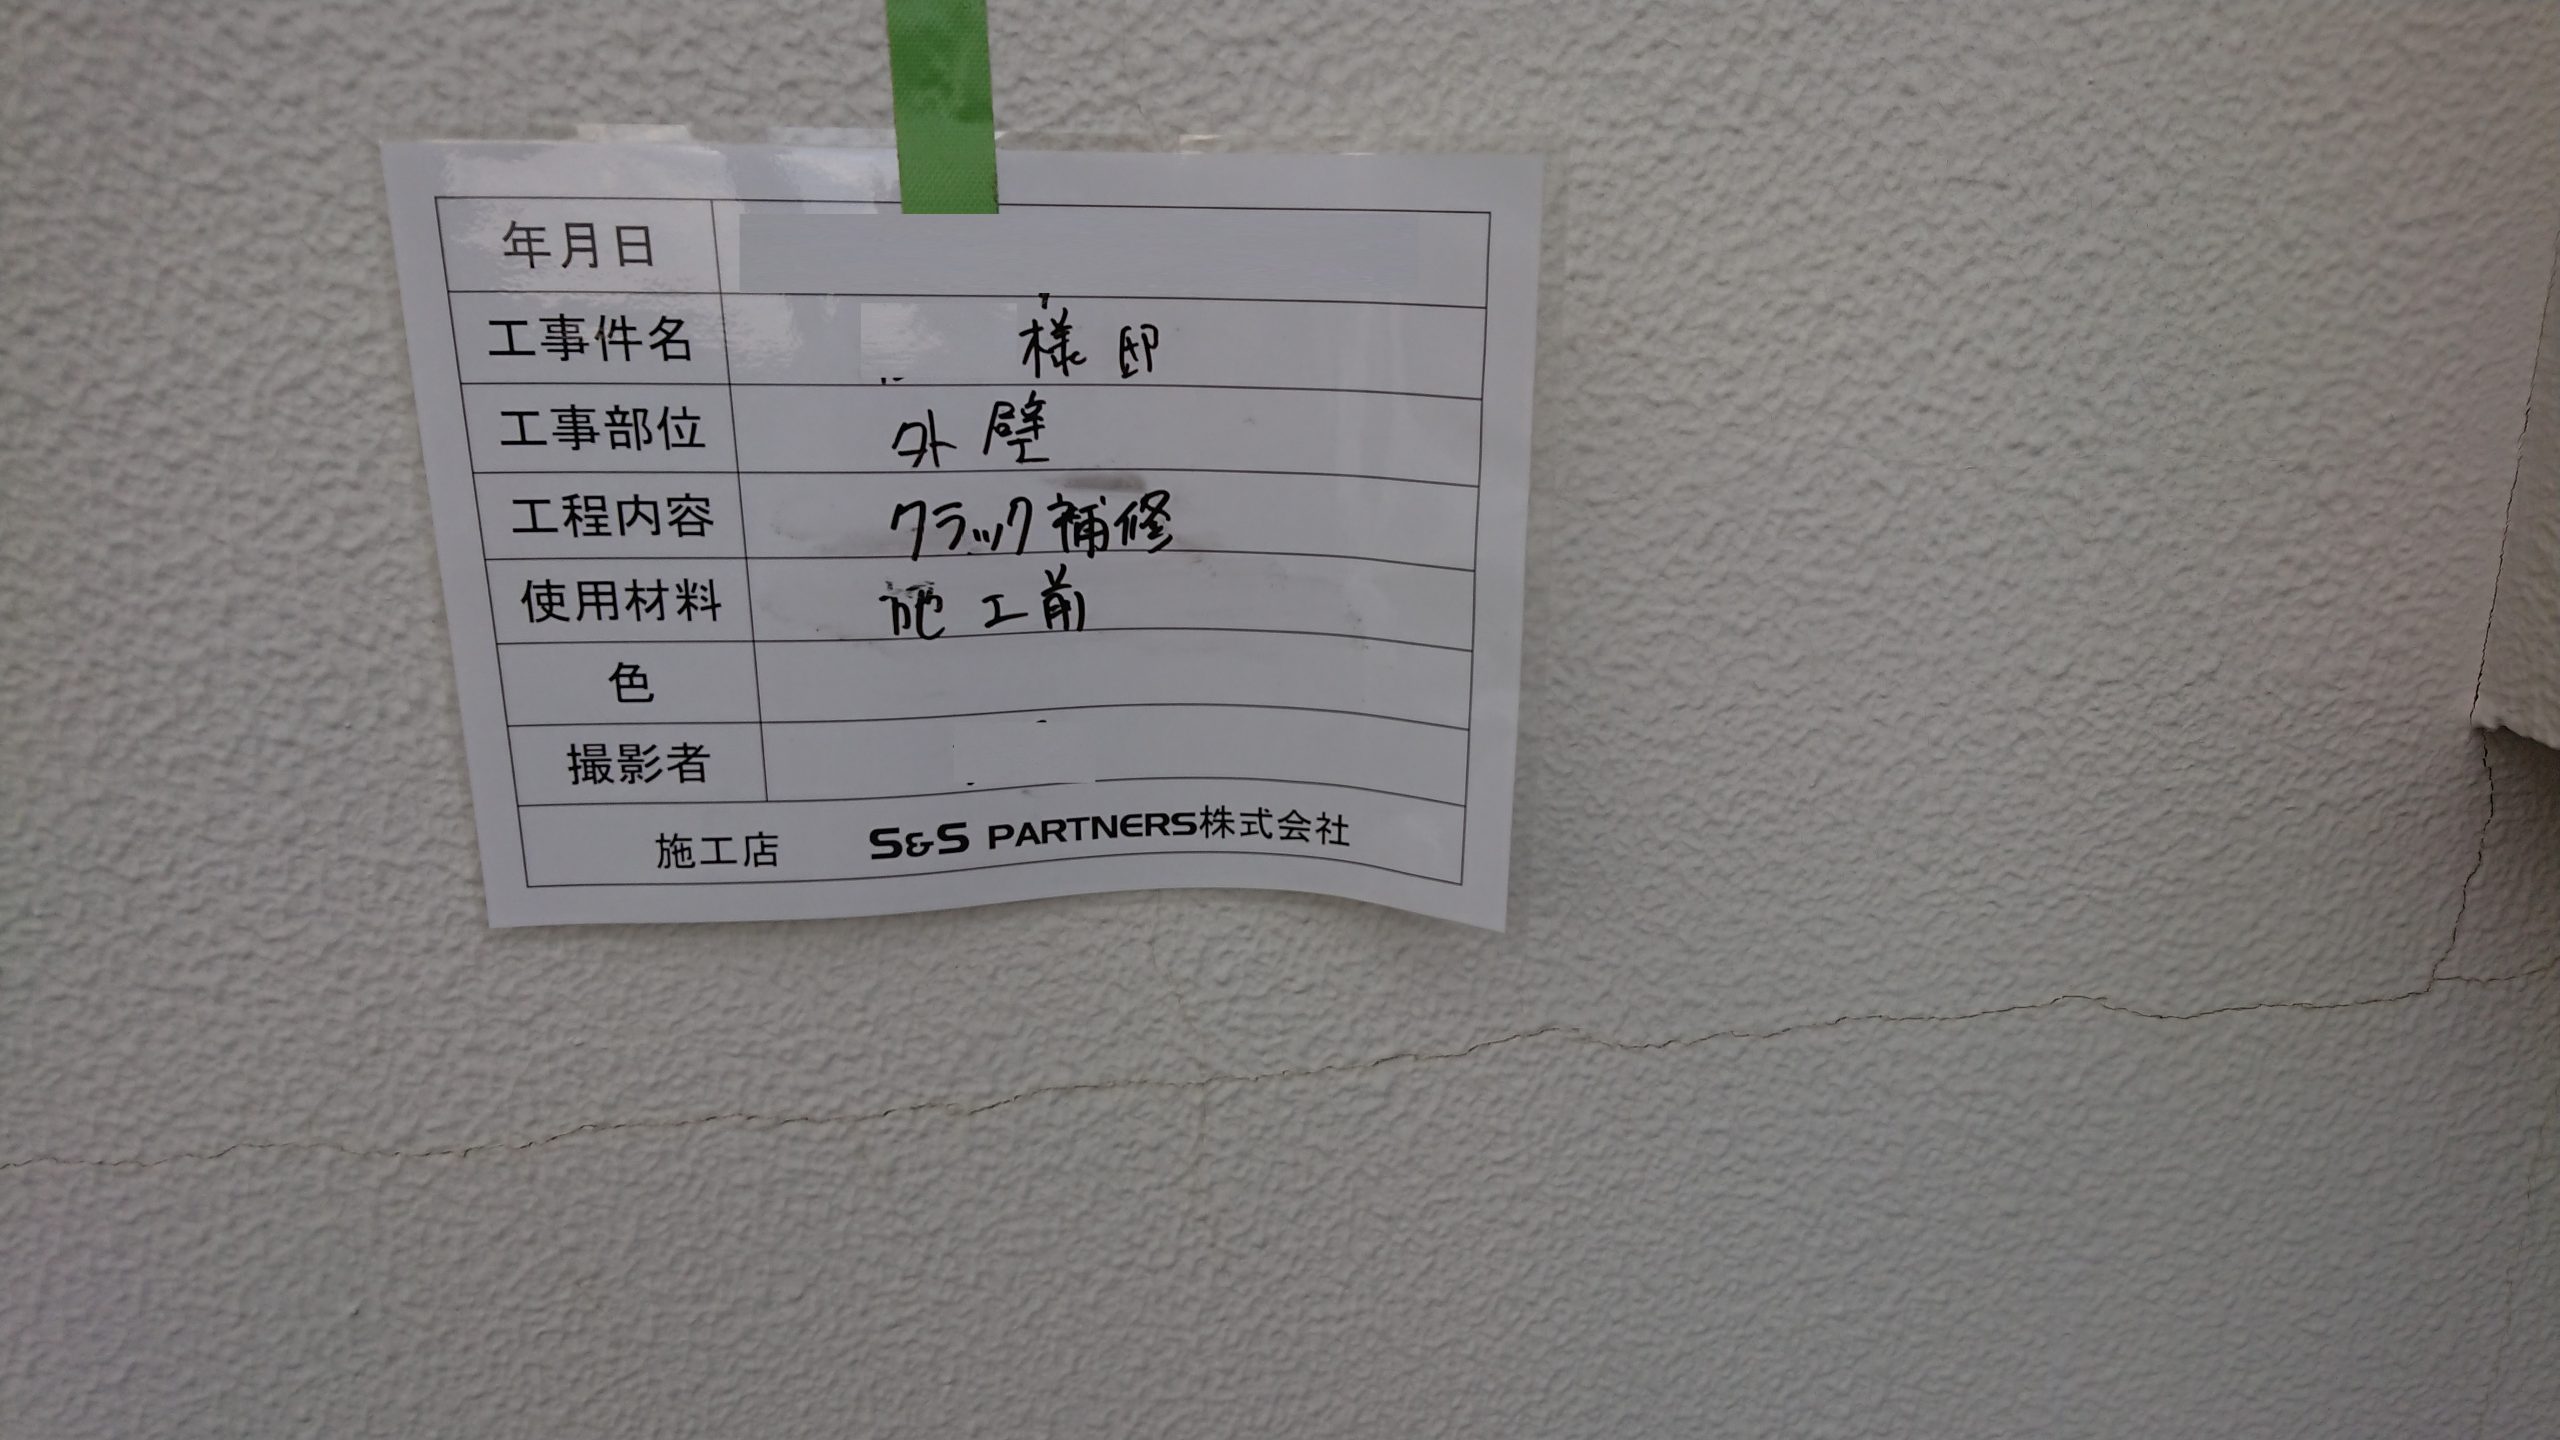 年月日
工事件名 様邸
工事部位 外壁
工程内容 クラック補修
使用材料 施工前
色
撮影者
施工店 S&S PARTNERS株式会社